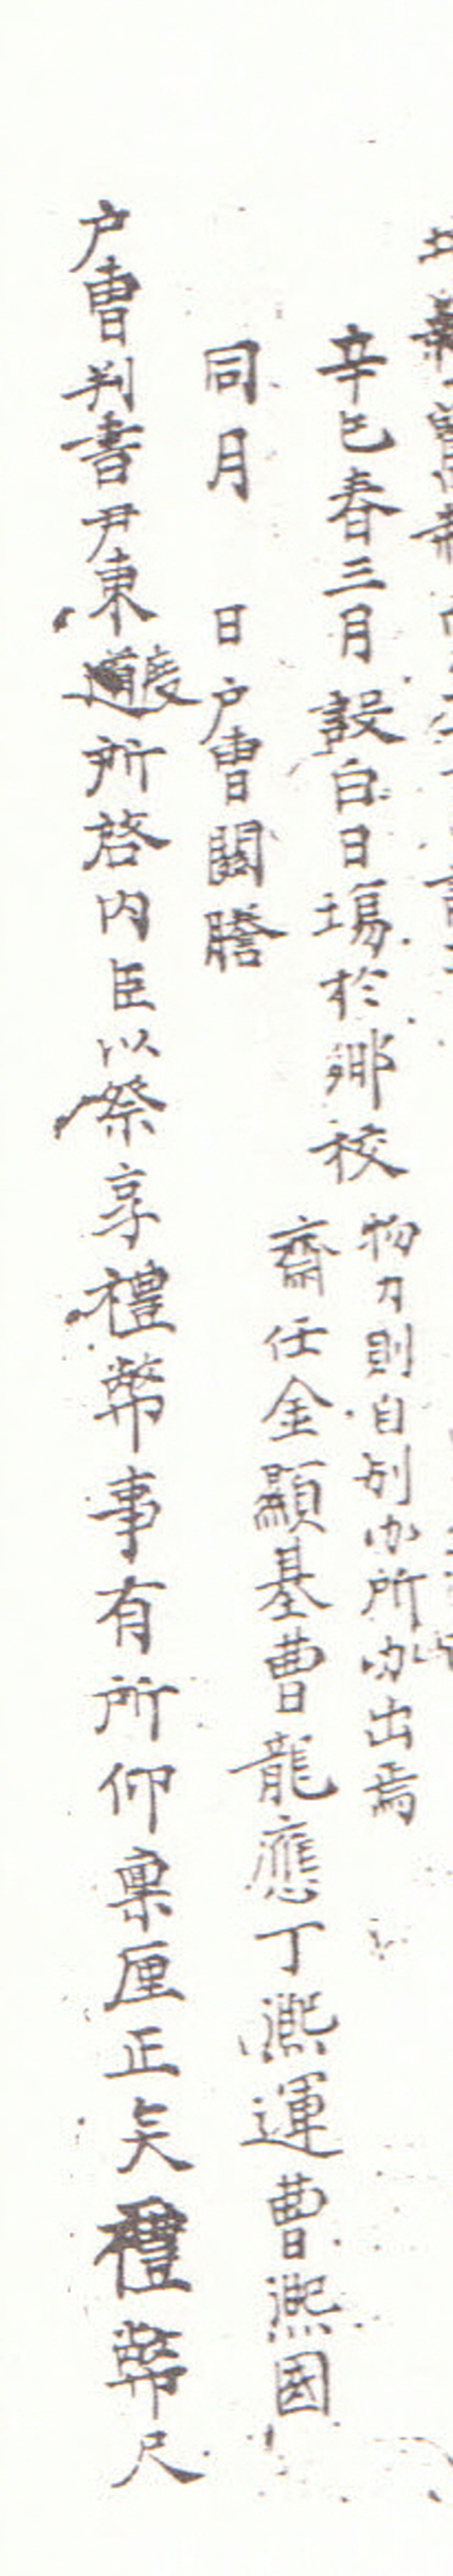 辛巳春三月設白日塲於鄕校
物力則自別办所办出焉
齋任金顯基曹龍應丁熙運曹熙國
同月 日戶曺関謄
戶曺判書尹東度所啓内臣以祭享禮幣事有所仰稟厘正矣禮幣尺